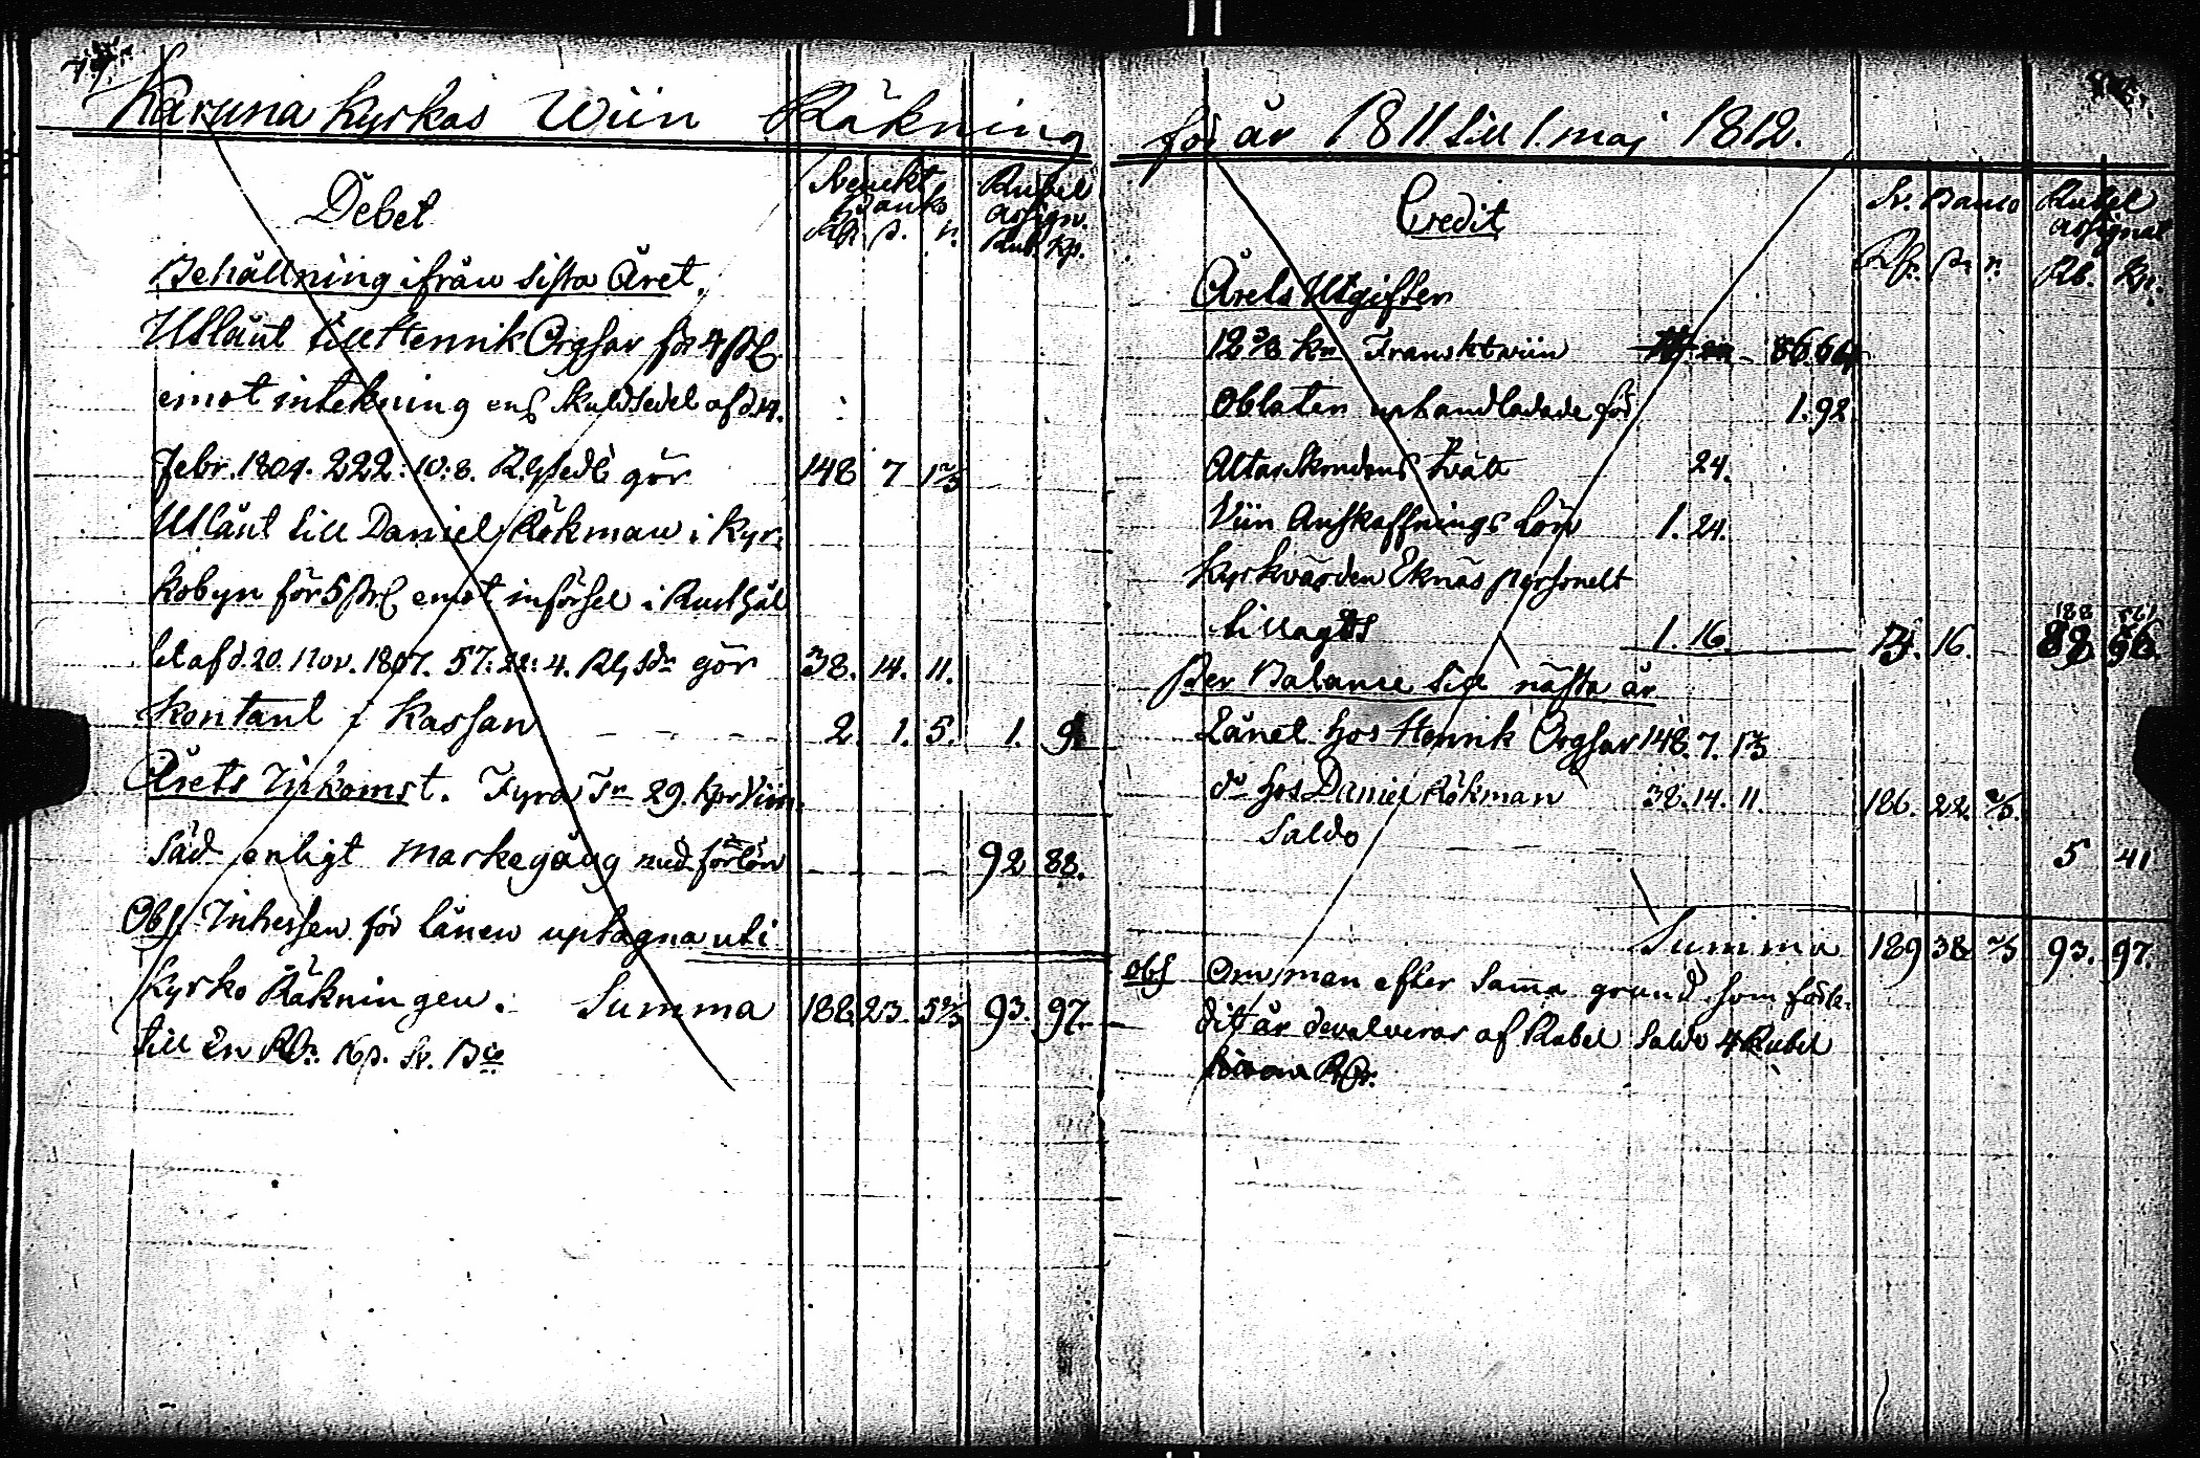 Karuna Kyrkas Wiin Räkning
Debet
Svenskt Banko
Rubel assign.
Rd. s. r. Rub. Kp.
Behållning ifrån sista Året.
Utlånt till Henrik Orghar för 4 prC
emot intekning ens skuldsedel af d. 14.
Febr. 1804. 222: 10: 8. Rgsedl gör 148 7 1 2/3
Utlånt till Daniel Rökman i Kyr-
kobyn för 5 prC emot införsel i Rusthål
let af d. 20. Nov. 1807. 57: 22: 4. Rg sdr gör 38. 14. 11.
Kontant i Kassan 2. 1. 5. 1. 9
Årets Inkomst. Fyra Tr 29. Kpr Viin
Säd enligt Markegång med förlön 92 88.
Obs. Intressen för lånen uptagna uti
Kyrko Räkningen. Summa 188 23. 5 2/3 93. 97.
till En Rdr. 16 s. Sv. Bco
för år 1811 till 1. maj 1812.
Credit
Sv. Banco
Rubel assignat
Rdr. s. r. Rb. Kp.
Årets Utgifter
12 3/8 Kr Transkt wiin 86. 64
Oblater uphandladade för 1. 92.
Altarskrudens tvätt 24.
Viin Anskaffnings Lön 1. 24.
Kyrkvärden Eknäs personelt
tillagds 1. 16. 3. 16. 88 56.
Per Balance till nästa år
Lånet hos Henrik Orghar 148. 7. 1 2/3
do hos Daniel Rökman 38. 14. 11. 186. 22. 2/3.
Saldo 5 41
Summa 189 38 2/3 93. 97.
obs Om man efter samma grund som förle-
dit år devalverar af Rubel Saldo 4 Rubel